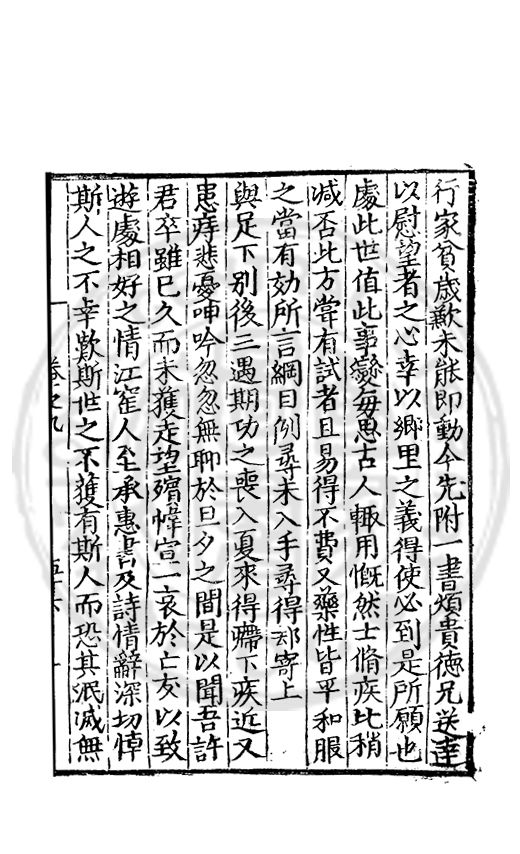 行家貧歲歉未能即動今先附一書煩貴德兄送達
以慰望者之心幸以鄉里之義得使必到是所願也
處此世值此事變每思古人輒用慨然士脩疾比稍
減否此方嘗有試者且易得不費又藥性皆平和服
之當有効所言綱目例尋未入手尋得却寄上
與足下別後三遇期功之喪入夏來得癉下疾近又
患痔悲憂呻吟忽忽無聊於旦夕之間是以聞吾許
君卒雖已久而未獲走望殯幃宣一哀於亡友以致
遊處相好之情江窰人至承惠書及詩情辭深切悼
斯人之不幸歎斯世之不獲有斯人而恐其泯滅無
卷之九